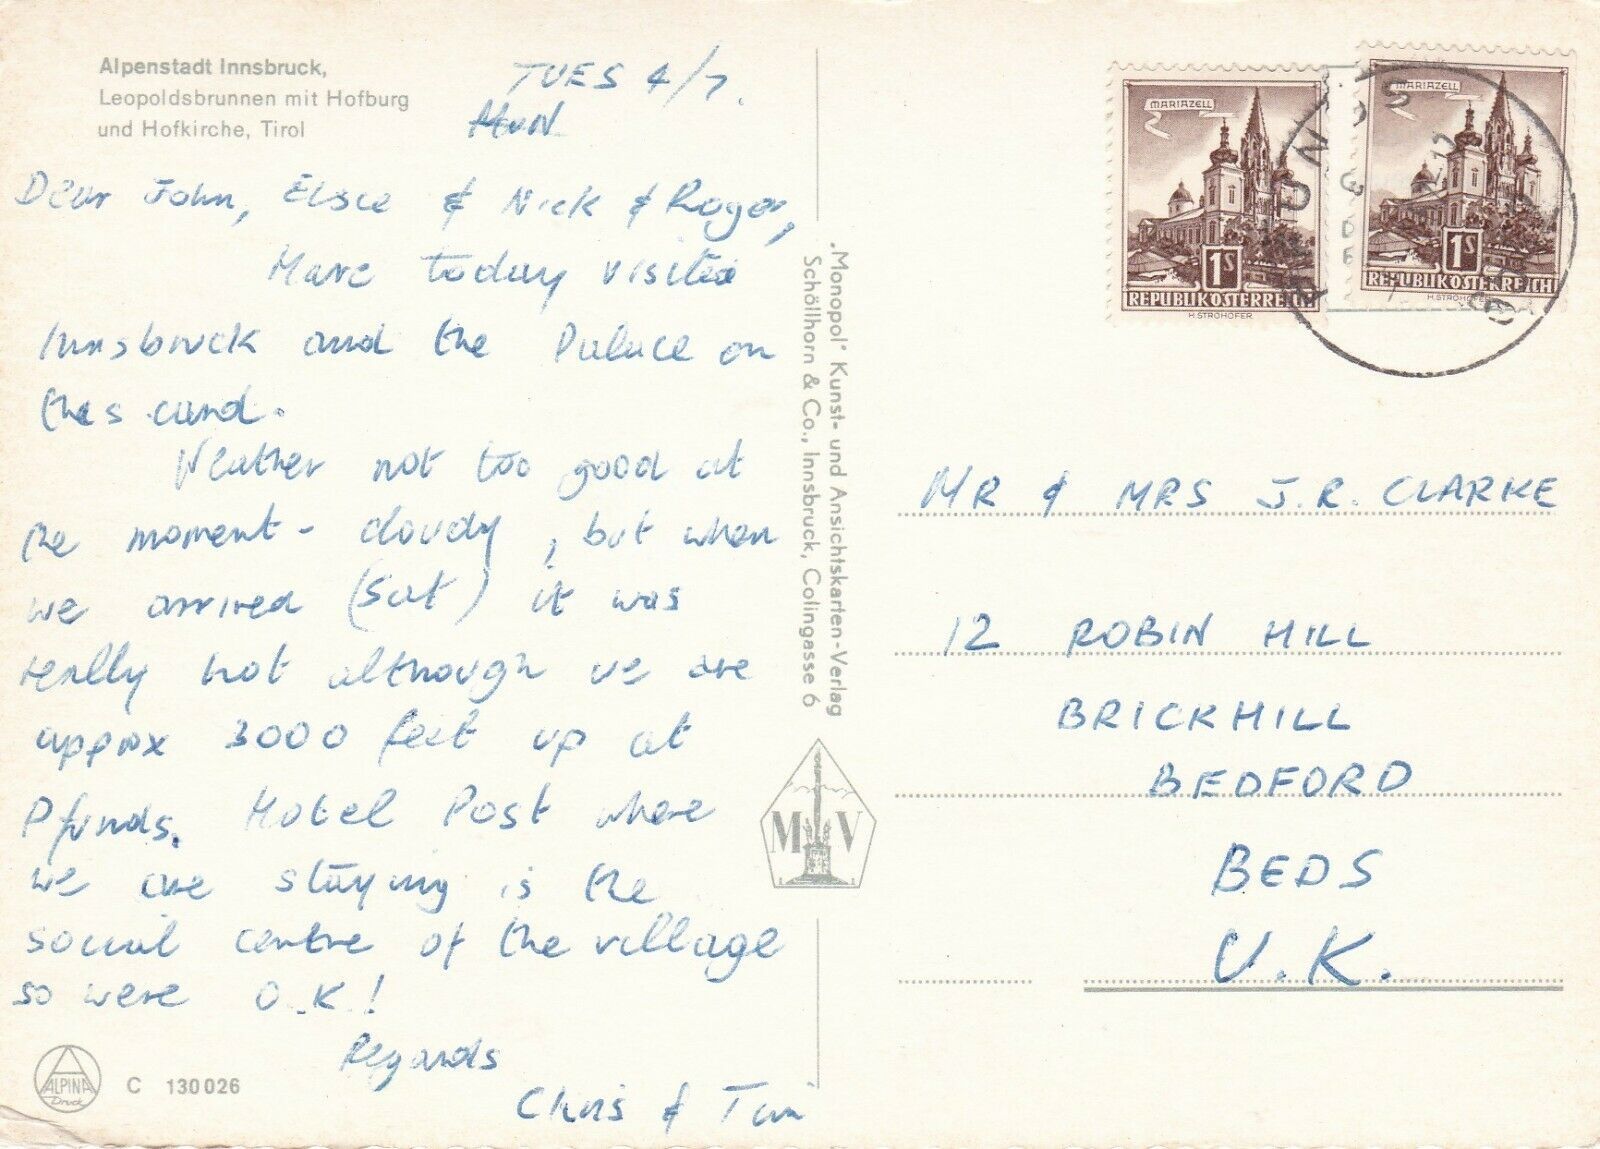 Alpenstadt Innsbruck,
Leopoldsbrunnen mit Hofburg
und Hofkirche, Tirol
TUES 4/7.
MON
Dear John, Elsie & Nick & Roger,
Have today visited
Innsbruck and the Palace on
this card.
Weather not too good at
the moment - cloudy, but when
we arrived (Sat) it was
really hot although we are
approx 3000 feet up at
Pfunds. Hotel Post where
we are staying is the
social centre of the village
so were O.K!
Regards
Chris & Tim
ALPINA
Druck
C 130 026
„Monopol" Kunst- und Ansichtskarten-Verlag
Schöllhorn & Co., Innsbruck, Colingasse 6
M V
MARIAZELL
1S
REPUBLIK ÖSTERREICH
H. STROHOFER
MARIAZELL
1S
REPUBLIK ÖSTERREICH
H. STROHOFER
MR & MRS J.R. CLARKE
12 ROBIN HILL
BRICKHILL
BEDFORD
BEDS
U.K.